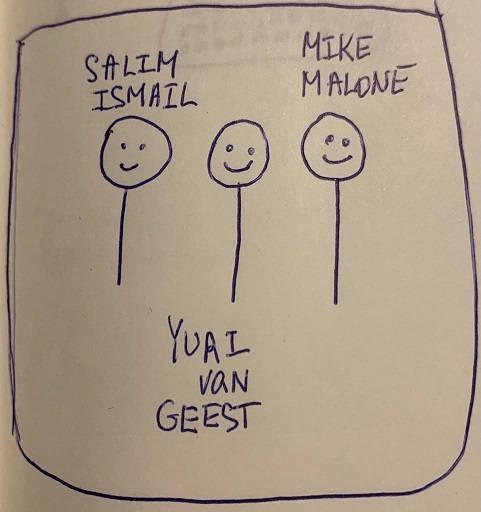 SALIM
ISMAIL
MIKE
MALONE
YURI
VAN
GEEST